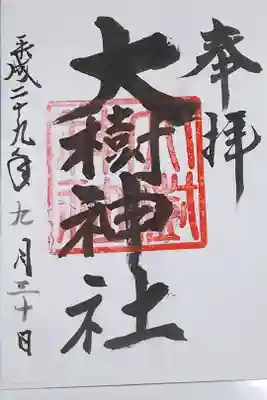 奉拝
大樹神社
平成二十九年九月三十日